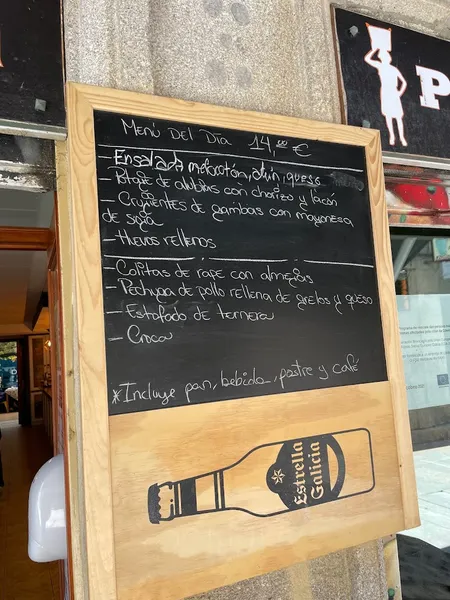 Menú Del Día 14,00 €
- Ensalada melocotón, atún, queso
Potaje de alubias con chorizo y lacón
- Crujientes de gambas con mayonesa
de soja
- Huevos rellenos
- Colitas de rape con almejas
- Pechuga de pollo rellena de grelos y queso
- Estofado de ternera
- Croca
*Incluye pan, bebida, postre y café
Estrella
Galicia
P